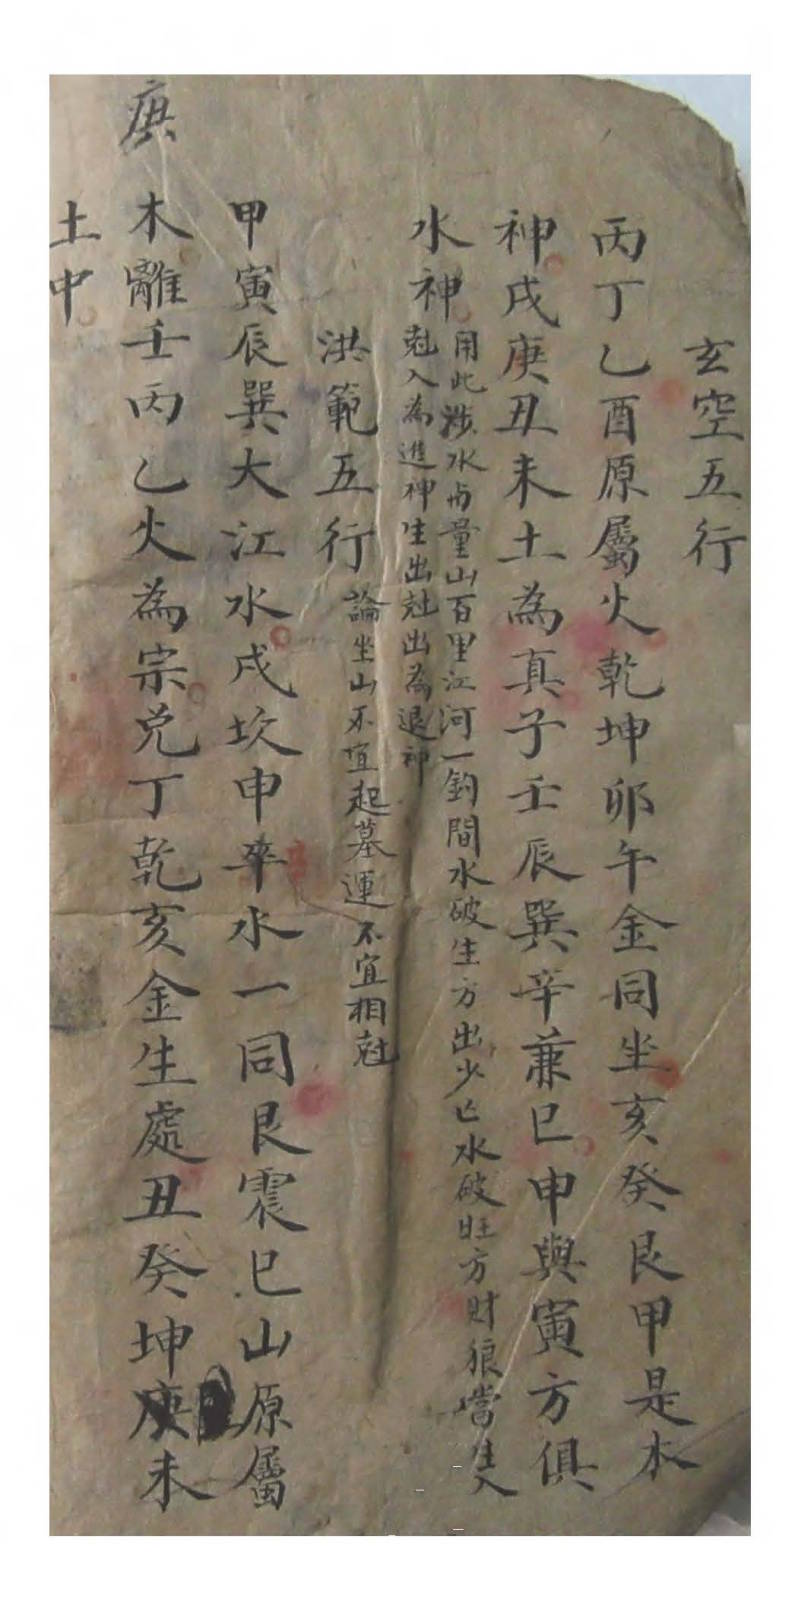 玄空五行
丙丁乙酉原屬火乾坤卯午金同坐亥癸艮甲是木
神戌庚丑未土為真子壬辰巽辛兼巳申與寅方俱
水神
用此涉水與量山百里江河一鈞間水破生方出少亡水破旺方財狼當生入
尅入為進神生出尅出為退神
洪範五行
論坐山不宜起墓運不宜相尅
甲寅辰巽大江水戌坎申辛水一同艮震巳山原屬
木離壬丙乙火為宗兌丁乾亥金生處丑癸坤庚未
庚
土中